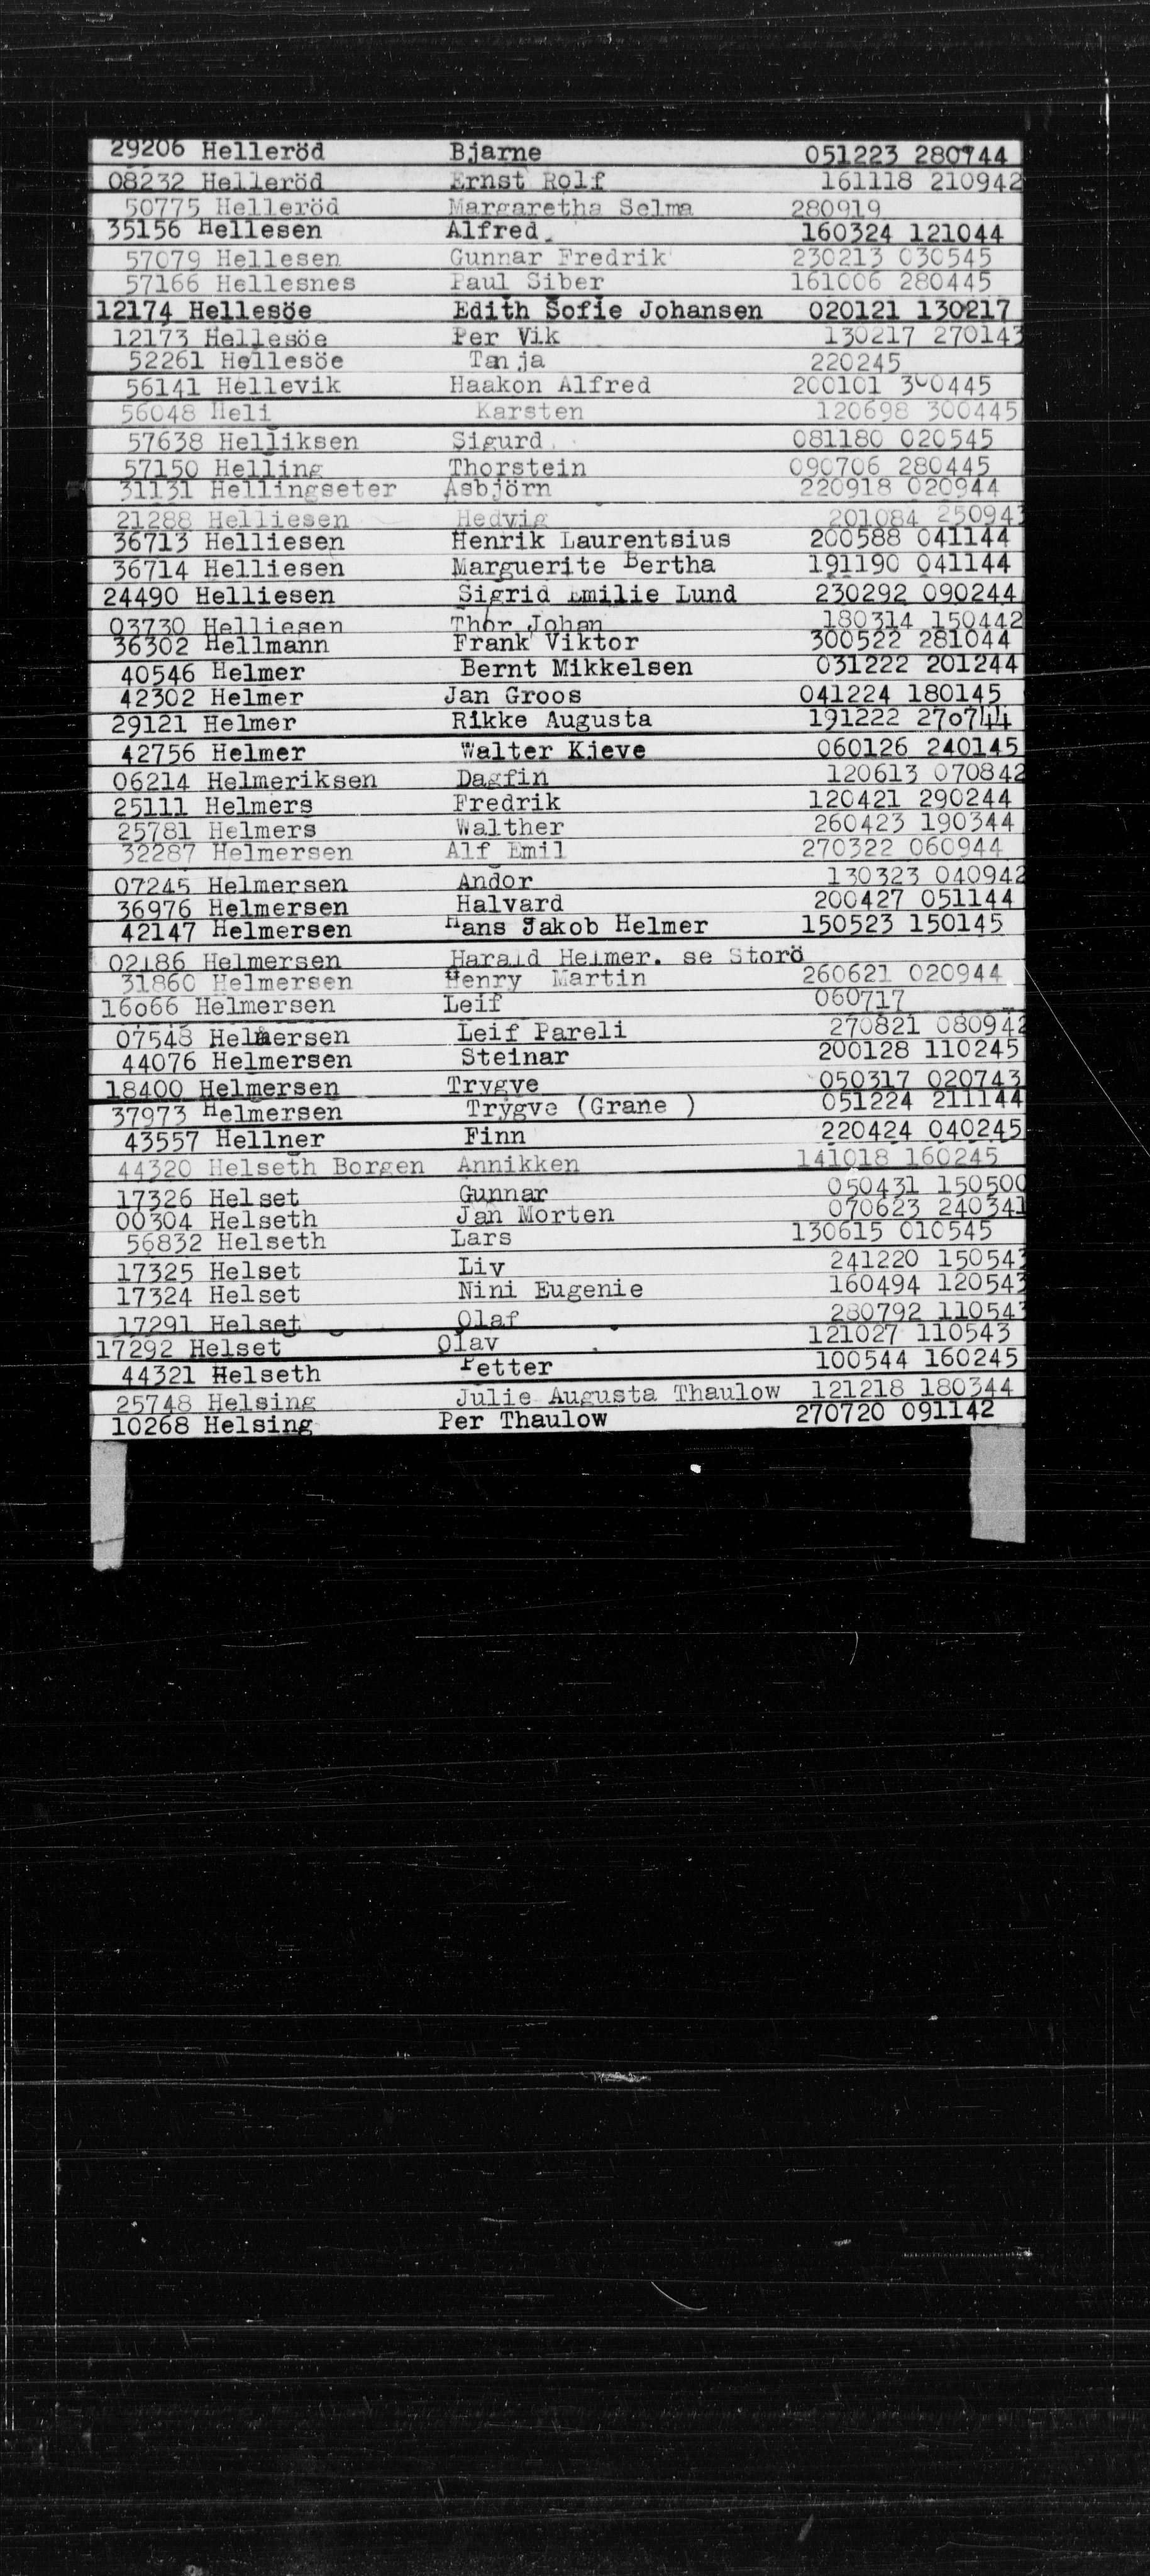 29206 Helleröd Bjarne 051223 280744
08232 Helleröd Ernst Rolf 161118 210942
50775 Helleröd Margaretha Selma 280919
35156 Hellesen Alfred. 160324 121044
57079 Hellesen Gunnar Fredrik 230213 030545
57166 Hellesnes Paul Siber 161006 280445
12174 Hellesöe Edith Sofie Johansen 020121 130217
12173 Hellesöe Per Vik 130217 270143
52261 Hellesöe Tanja 220245
56141 Hellevik Haakon Alfred 200101 300445
56048 Heli Karsten 120698 300445
57638 Helliksen Sigurd 081180 020545
57150 Helling Thorstein 090706 280445
31131 Hellingseter Asbjörn 220918 020944
21288 Helliesen Hedvig 201084 250943
36713 Helliesen Henrik Laurentsius 200588 041144
36714 Helliesen Marguerite Bertha 191190 041144
24490 Helliesen Sigrid Emilie Lund 230292 090244
03730 Helliesen Thor Johan 180314 150442
36302 Hellmann Frank Viktor 300522 281044
40546 Helmer Bernt Mikkelsen 031222 201244
42302 Helmer Jan Groos 041224 180145
29121 Helmer Rikke Augusta 191222 270744
42756 Helmer Walter Kieve 060126 240145
06214 Helmeriksen Dagfin 120613 070842
25111 Helmers Fredrik 120421 290244
25781 Helmers Walther 260423 190344
32287 Helmersen Alf Emil 270322 060944
07245 Helmersen Andor 130323 040942
36976 Helmersen Halvard 200427 051144
42147 Helmersen Hans Jakob Helmer 150523 150145
02186 Helmersen Harald Helmer. se Storö
31860 Helmersen Henry Martin 260621 020944
16066 Helmersen Leif 060717
07548 Helmersen Leif Pareli 270821 080942
44076 Helmersen Steinar 200128 110245
18400 Helmersen Trygve 050317 020743
37973 Helmersen Trygve (Grane ) 051224 211144
43557 Hellner Finn 220424 040245
44320 Helseth Borgen Annikken 141018 160245
17326 Helset Gunnar 050431 150500
00304 Helseth Jan Morten 070623 240341
56832 Helseth Lars 130615 010545
17325 Helset Liv 241220 150543
17324 Helset Nini Eugenie 160494 120543
17291 Helset Olaf 280792 110543
17292 Helset Olav 121027 110543
44321 Helseth Petter 100544 160245
25748 Helsing Julie Augusta Thaulow 121218 180344
10268 Helsing Per Thaulow 270720 091142